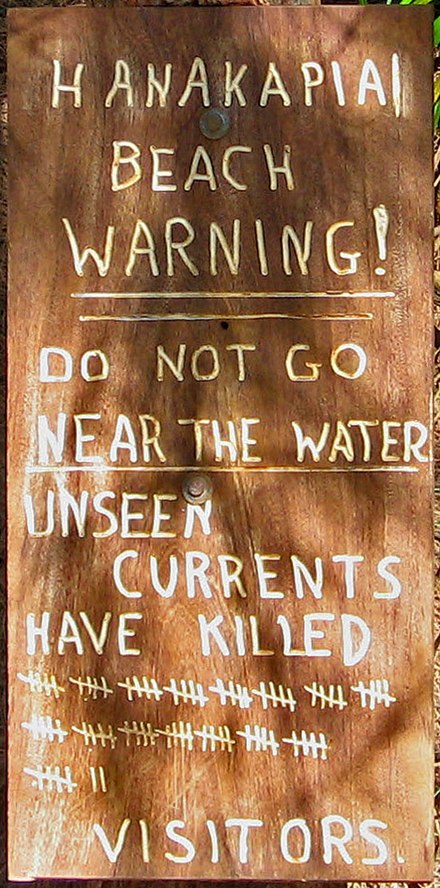 HANAKAPIAI
BEACH
WARNING!
DO NOT GO
NEAR THE WATER
UNSEEN
CURRENTS
HAVE KILLED
𝍸 𝍸 𝍸 𝍸 𝍸 𝍸 𝍸 𝍸
𝍸 𝍸 𝍸 𝍸 𝍸 𝍸 𝍸
𝍸 ||
VISITORS.